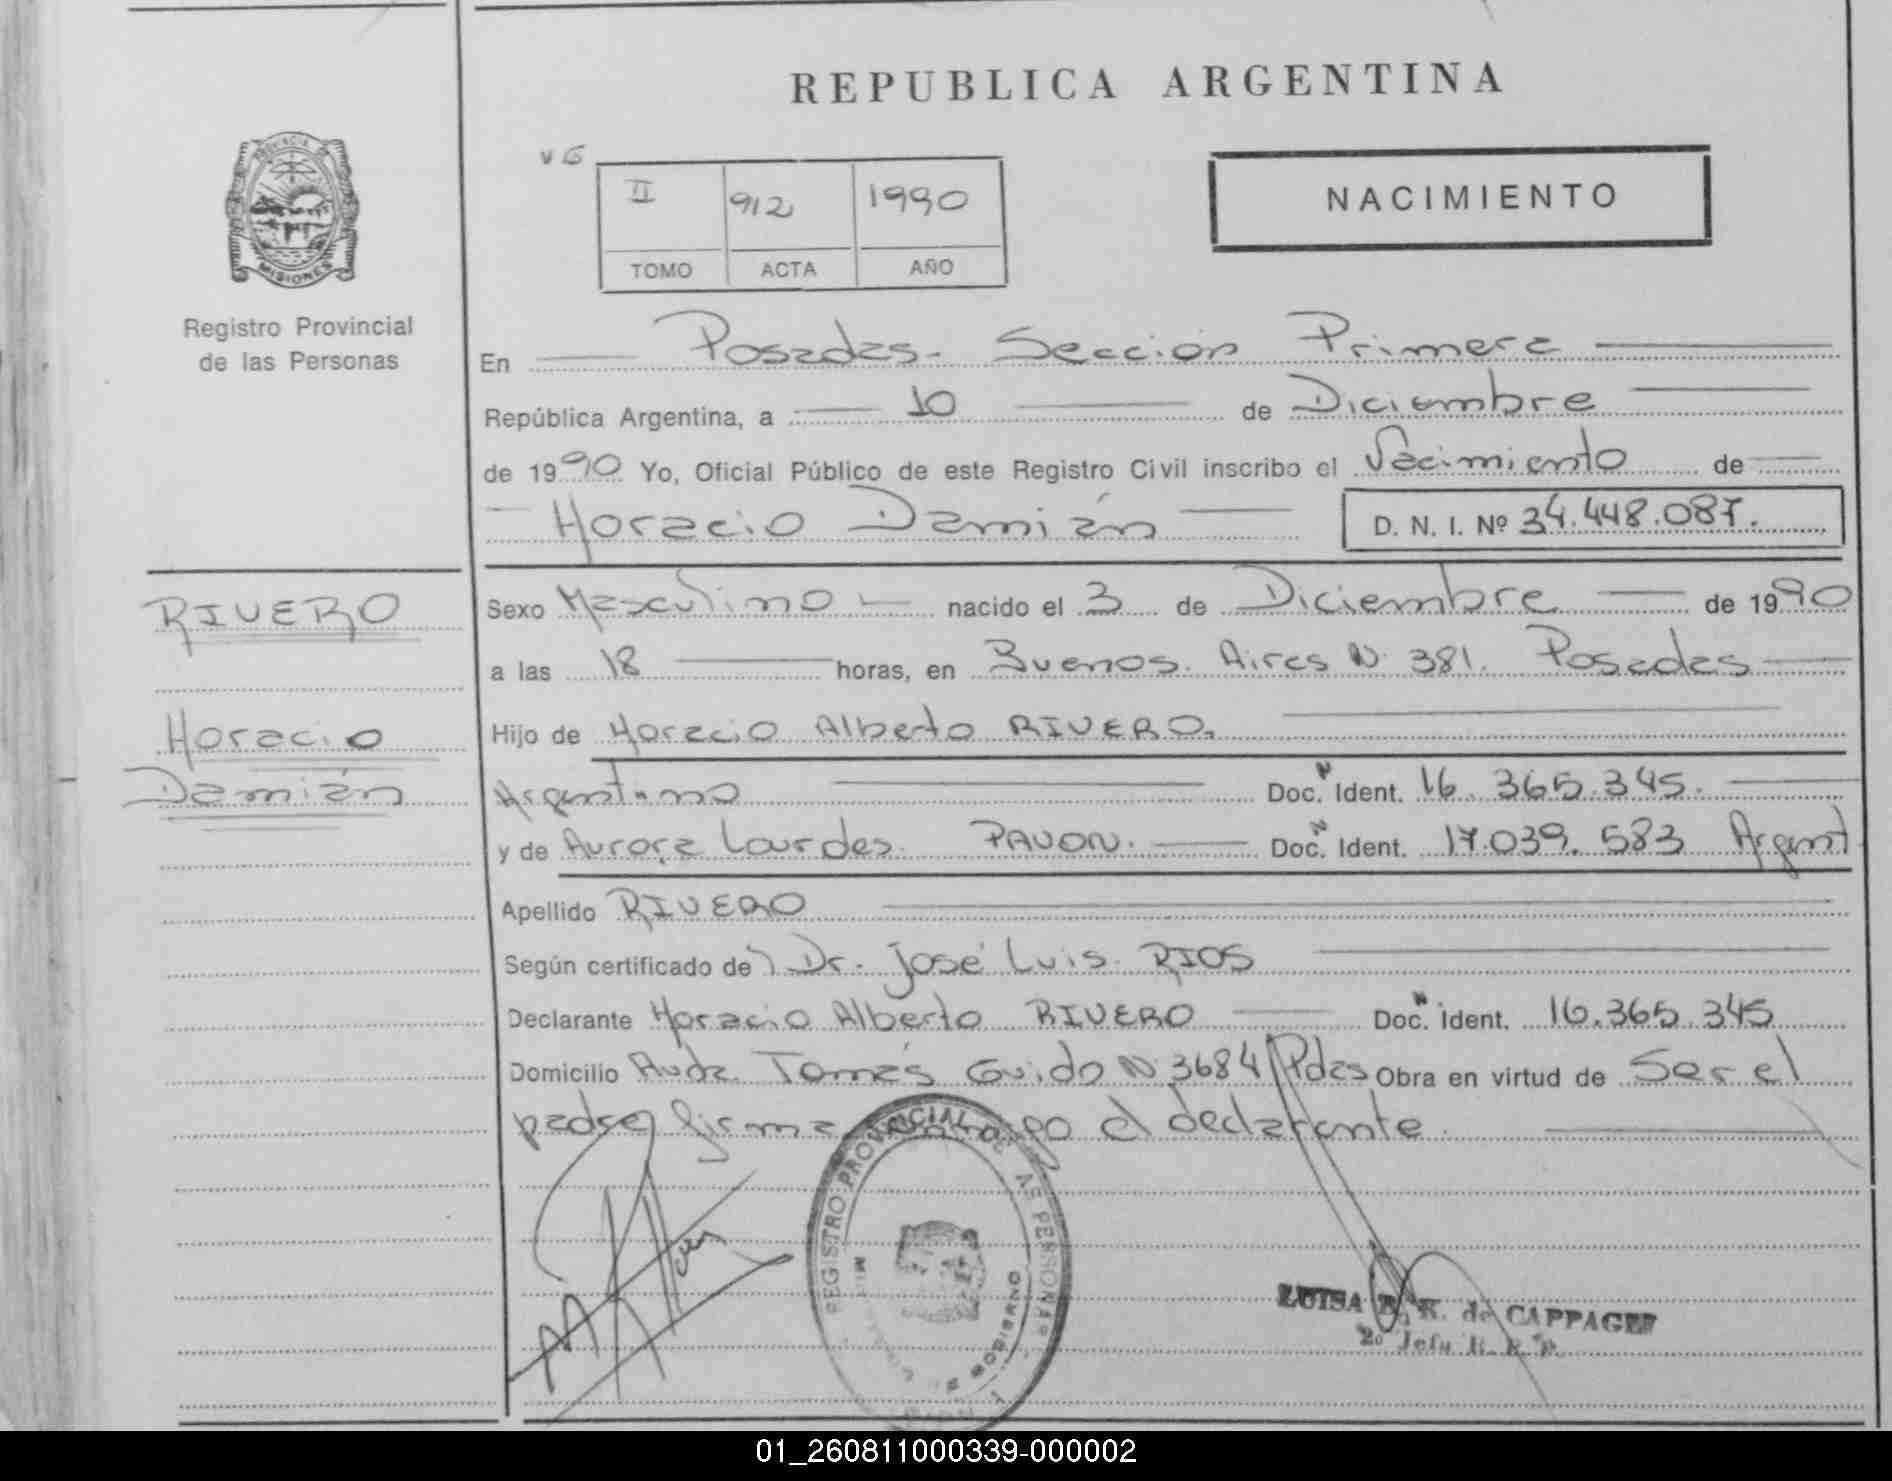 REPUBLICA ARGENTINA
PROVINCIA DE
MISIONES
Registro Provincial
de las Personas
VG
II 912 1990
TOMO ACTA AÑO
NACIMIENTO
En Posadas. Sección Primera
República Argentina, a 10 de Diciembre
de 1990 Yo, Oficial Público de este Registro Civil inscribo el Nacimiento de
Horacio Damián D. N. I. Nº 34.448.087.
RIVERO
Horacio
Damián
Sexo Masculino nacido el 3 de Diciembre de 1990
a las 18 horas, en Buenos Aires N 381. Posadas
Hijo de Horacio Alberto RIVERO.
Argentino Doc. N Ident. 16.365.345.
y de Aurora Lourdes PAVON. Doc. N Ident. 17.039.583 Argent
Apellido RIVERO
Según certificado de Dr. José Luis RIOS
Declarante Horacio Alberto RIVERO Doc. N Ident. 16.365.345
Domicilio Avda. Tomás Guido N 3684 Pdas Obra en virtud de Ser el
padre, firma conmigo el declarante
REGISTRO PROVINCIAL DE LAS PERSONAS
LUISA R. de CAPPAGLI
2o Jefa R. P. P.
01_260811000339-000002